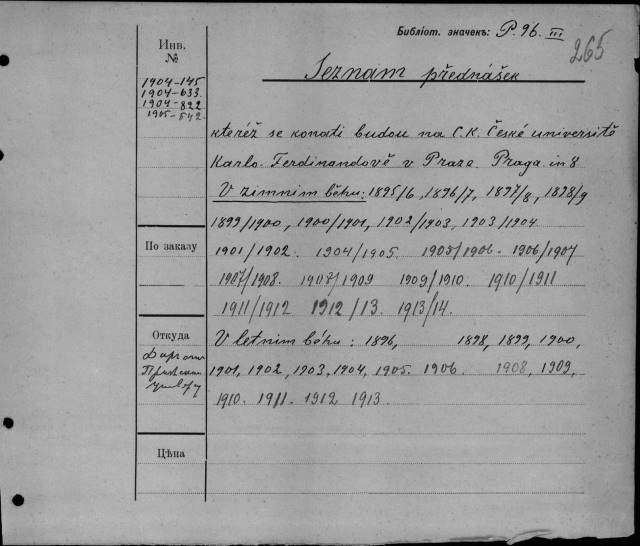 Библіот. значекъ: P. 96. III
265
Инв.
№
1904-145
1904-633
1904-822
1905-542.
Seznam přednášek
kteréž se konati budou na C.K. České universitě
Karlo-Ferdinandově v Praze. Praga in 8
V zimním běhu: 1895/6, 1896/7, 1897/8, 1898/9
1899/1900, 1900/1901, 1902/1903, 1903/1904
По заказу
1901/1902. 1904/1905. 1905/1906. 1906/1907
1907/1908. 1908/1909 1909/1910. 1910/1911
1911/1912 1912/13. 1913/14.
Откуда
V letním běhu: 1896, 1898, 1899, 1900,
1901, 1902, 1903, 1904, 1905. 1906. 1908, 1909,
1910. 1911. 1912 1913.
Цѣна